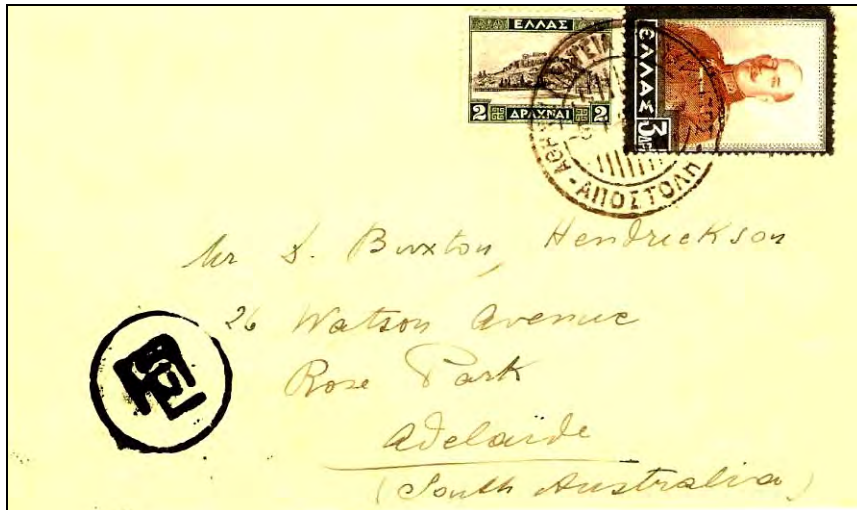 ΕΛΛΑΣ
2 ΔΡΑΧΜΑΙ 2
ΕΛΛΑΣ
3
ΑΠΟΣΤΟΛΗ
Mr S. Buxton, Hendrickson
26 Watson Avenue
Rose Park
Adelaide
(South Australia)